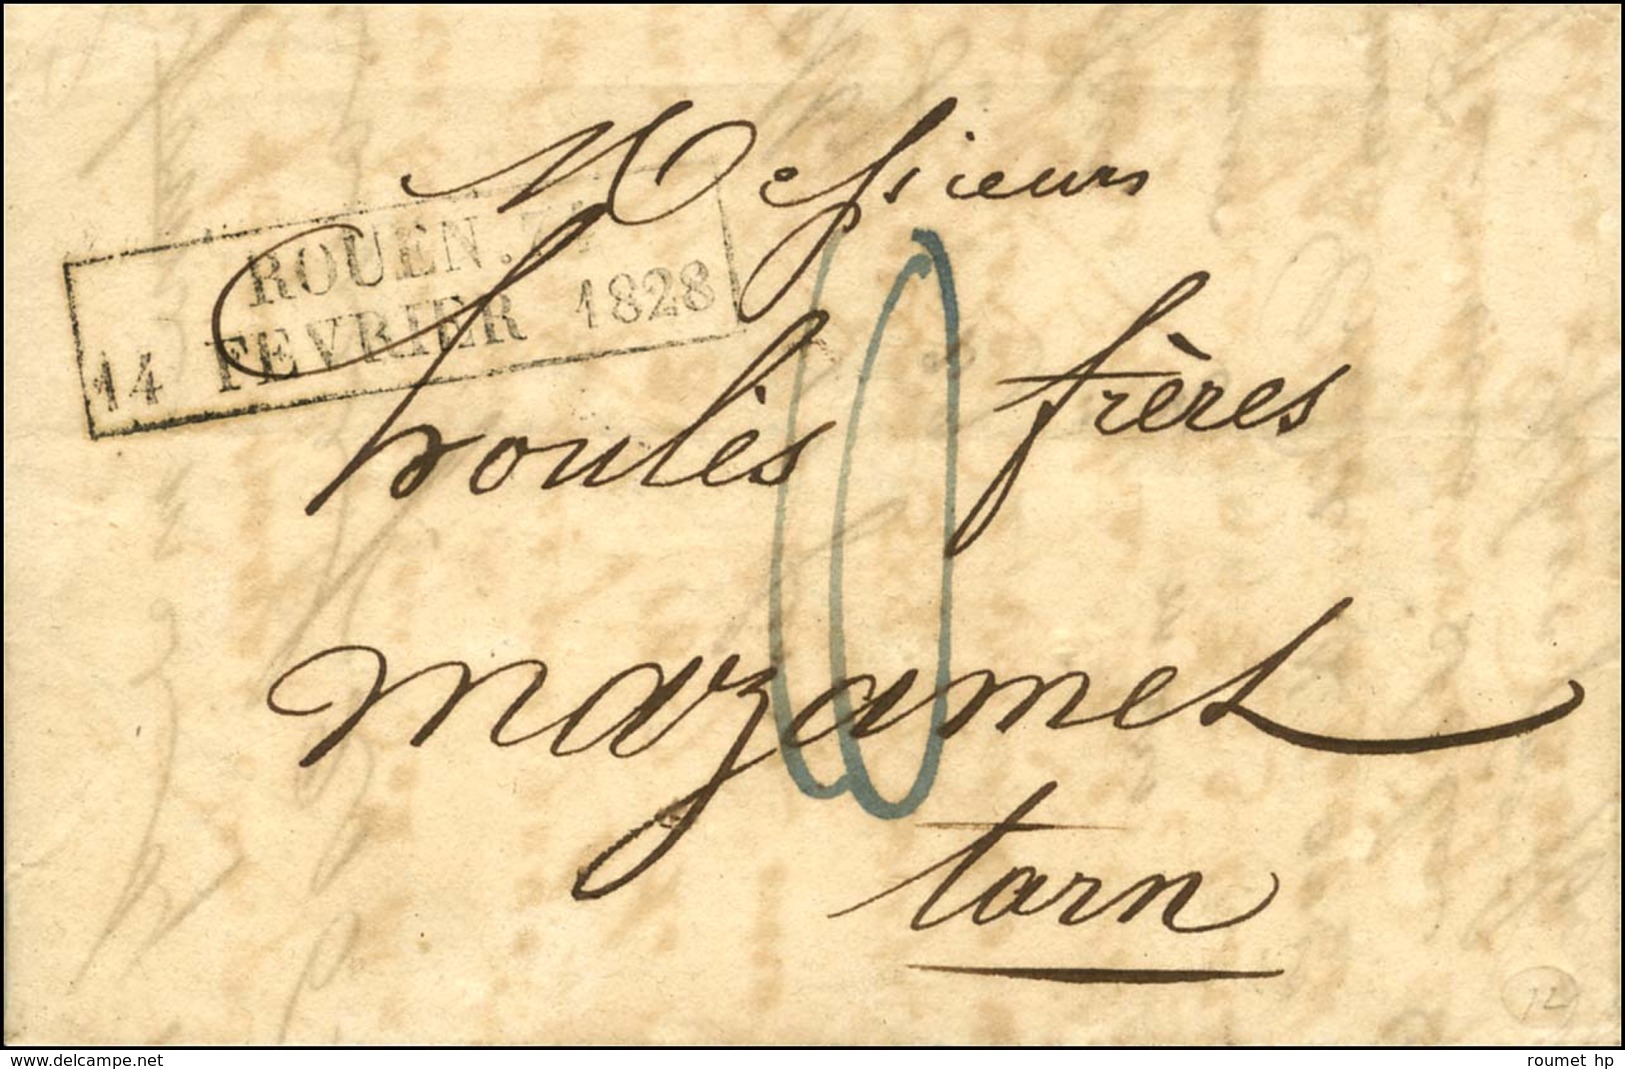 Messieurs
ROUEN. 74
14 FEVRIER 1828
houlès frères
10
mazamet
tarn
12
www.delcampe.net
roumet hp